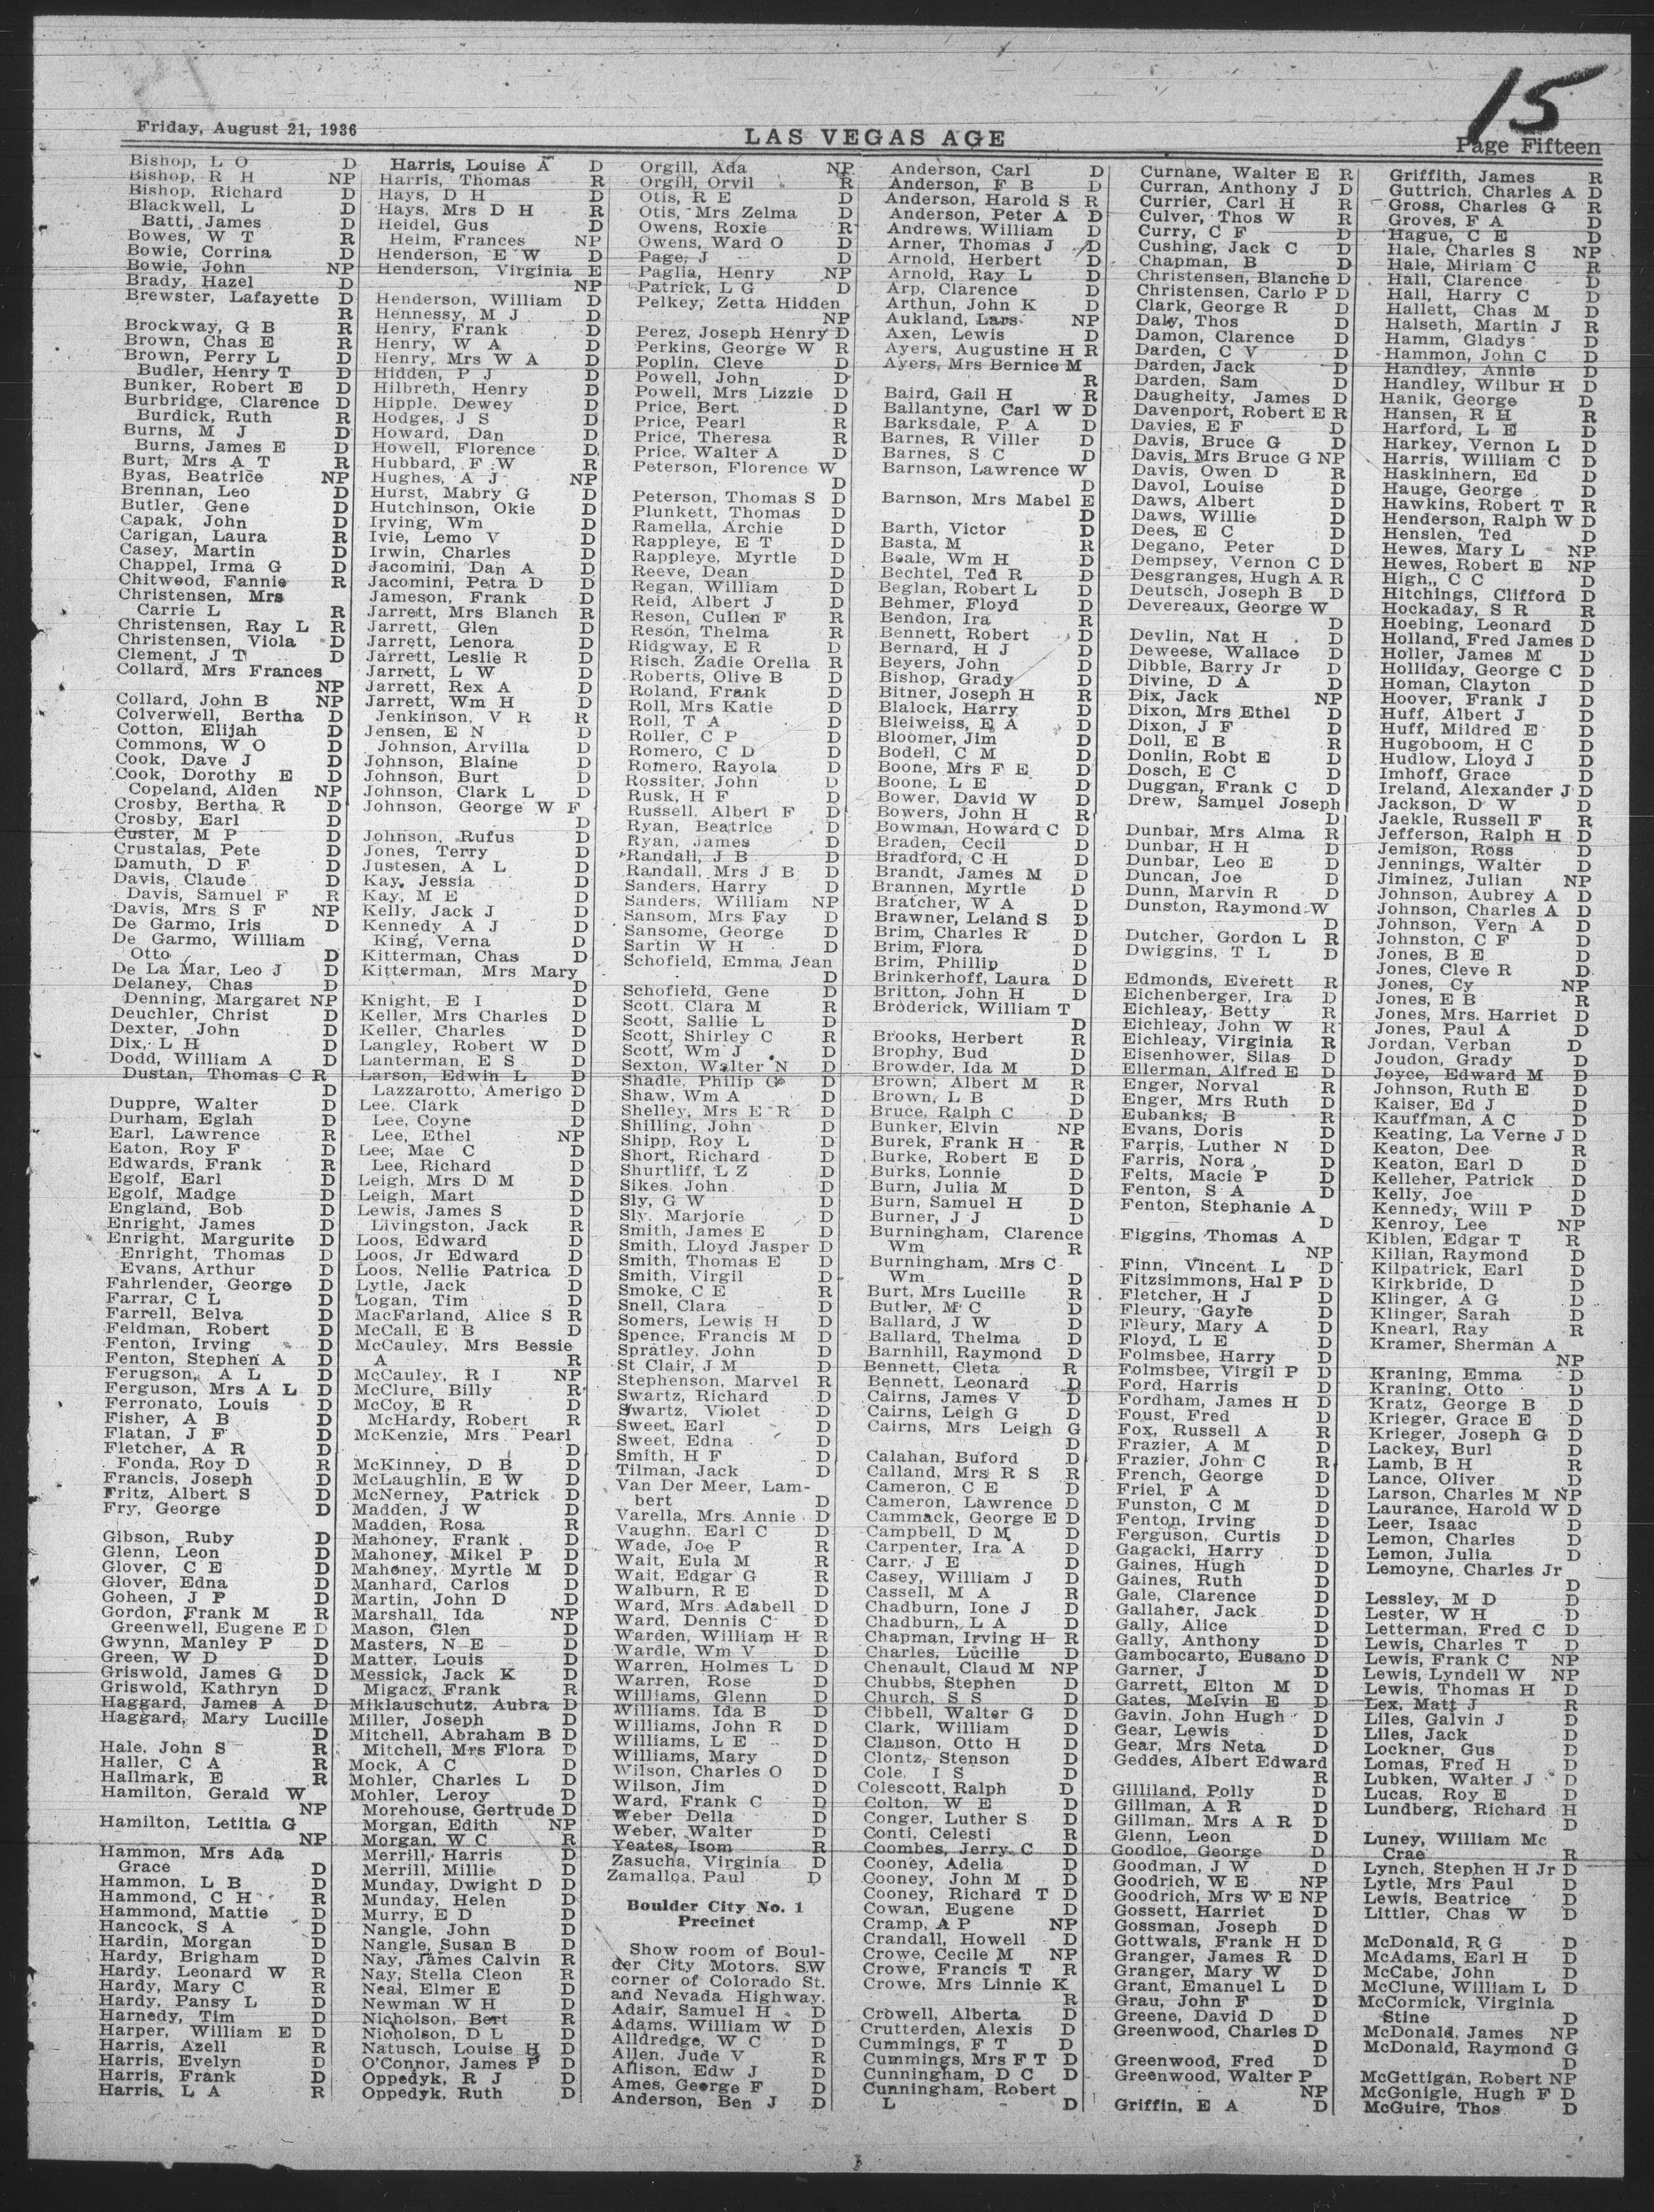 15
Friday, August 21, 1936
LAS VEGAS AGE
Page Fifteen
Bishop, L O D
Bishop, R H NP
Bishop, Richard D
Blackwell, L D
Batti, James D
Bowes, W T R
Bowie, Corrina D
Bowie, John NP
Brady, Hazel D
Brewster, Lafayette D
R
Brockway, G B R
Brown, Chas E R
Brown, Perry L D
Budler, Henry T D
Bunker, Robert E D
Burbridge, Clarence D
Burdick, Ruth R
Burns, M J D
Burns, James E D
Burt, Mrs A T R
Byas, Beatrice NP
Brennan, Leo D
Butler, Gene D
Capak, John D
Carigan, Laura R
Casey, Martin D
Chappel, Irma G D
Chitwood, Fannie R
Christensen, Mrs
Carrie L R
Christensen, Ray L R
Christensen, Viola D
Clement, J T D
Collard, Mrs Frances
NP
Collard, John B NP
Colverwell, Bertha D
Cotton, Elijah D
Commons, W O D
Cook, Dave J D
Cook, Dorothy E D
Copeland, Alden NP
Crosby, Bertha R D
Crosby, Earl D
Custer, M P D
Crustalas, Pete D
Damuth, D F D
Davis, Claude D
Davis, Samuel F R
Davis, Mrs S F NP
De Garmo, Iris D
De Garmo, William
Otto D
De La Mar, Leo J D
Delaney, Chas D
Denning, Margaret NP
Deuchler, Christ D
Dexter, John D
Dix, L H D
Dodd, William A D
Dustan, Thomas C R
D
Duppre, Walter D
Durham, Eglah D
Earl, Lawrence R
Eaton, Roy F D
Edwards, Frank R
Egolf, Earl D
Egolf, Madge D
England, Bob D
Enright, James D
Enright, Margurite D
Enright, Thomas D
Evans, Arthur D
Fahrlender, George D
Farrar, C L D
Farrell, Belva D
Feldman, Robert D
Fenton, Irving D
Fenton, Stephen A D
Ferugson, A L D
Ferguson, Mrs A L D
Ferronato, Louis D
Fisher, A B D
Flatan, J F D
Fletcher, A R D
Fonda, Roy D R
Francis, Joseph D
Fritz, Albert S D
Fry, George D
Gibson, Ruby D
Glenn, Leon D
Glover, C E D
Glover, Edna D
Goheen, J P D
Gordon, Frank M R
Greenwell, Eugene E D
Gwynn, Manley P D
Green, W D D
Griswold, James G D
Griswold, Kathryn D
Haggard, James A D
Haggard, Mary Lucille
D
Hale, John S R
Haller, C A R
Hallmark, E R
Hamilton, Gerald W
NP
Hamilton, Letitia G
NP
Hammon, Mrs Ada
Grace D
Hammon, L B D
Hammond, C H R
Hammond, Mattie D
Hancock, S A D
Hardin, Morgan D
Hardy, Brigham D
Hardy, Leonard W R
Hardy, Mary C R
Hardy, Pansy L D
Harnedy, Tim D
Harper, William E D
Harris, Azell R
Harris, Evelyn D
Harris, Frank D
Harris, L A R
Harris, Louise A D
Harris, Thomas R
Hays, D H D
Hays, Mrs D H R
Heidel, Gus D
Helm, Frances NP
Henderson, E W D
Henderson, Virginia E
NP
Henderson, William D
Hennessy, M J D
Henry, Frank D
Henry, W A D
Henry, Mrs W A D
Hidden, P J D
Hilbreth, Henry D
Hipple, Dewey D
Hodges, J S D
Howard, Dan D
Howell, Florence D
Hubbard, F W R
Hughes, A J NP
Hurst, Mabry G D
Hutchinson, Okie D
Irving, Wm D
Ivie, Lemo V D
Irwin, Charles D
Jacomini, Dan A D
Jacomini, Petra D D
Jameson, Frank D
Jarrett, Mrs Blanch R
Jarrett, Glen D
Jarrett, Lenora D
Jarrett, Leslie R D
Jarrett, L W D
Jarrett, Rex A D
Jarrett, Wm H D
Jenkinson, V R R
Jensen, E N D
Johnson, Arvilla D
Johnson, Blaine D
Johnson, Burt D
Johnson, Clark L D
Johnson, George W F
D
Johnson, Rufus D
Jones, Terry D
Justesen, A L D
Kay, Jessia D
Kay, M E D
Kelly, Jack J D
Kennedy A J D
King, Verna D
Kitterman, Chas D
Kitterman, Mrs Mary
D
Knight, E I D
Keller, Mrs Charles D
Keller, Charles D
Langley, Robert W D
Lanterman, E S D
Larson, Edwin L D
Lazzarotto, Amerigo D
Lee, Clark D
Lee, Coyne D
Lee, Ethel NP
Lee, Mae C D
Lee, Richard D
Leigh, Mrs D M D
Leigh, Mart D
Lewis, James S D
Livingston, Jack R
Loos, Edward D
Loos, Jr Edward D
Loos, Nellie Patrica D
Lytle, Jack D
Logan, Tim D
MacFarland, Alice S R
McCall, E B D
McCauley, Mrs Bessie
A R
McCauley, R I NP
McClure, Billy R
McCoy, E R D
McHardy, Robert R
McKenzie, Mrs Pearl
D
McKinney, D B D
McLaughlin, E W D
McNerney, Patrick D
Madden, J W D
Madden, Rosa R
Mahoney, Frank D
Mahoney, Mikel P D
Mahoney, Myrtle M D
Manhard, Carlos D
Martin, John D D
Marshall, Ida NP
Mason, Glen D
Masters, N E D
Matter, Louis D
Messick, Jack K D
Migacz, Frank R
Miklauschutz, Aubra D
Miller, Joseph D
Mitchell, Abraham B D
Mitchell, Mrs Flora D
Mock, A C D
Mohler, Charles L D
Mohler, Leroy D
Morehouse, Gertrude D
Morgan, Edith NP
Morgan, W C R
Merrill, Harris D
Merrill, Millie D
Munday, Dwight D D
Munday, Helen D
Murry, E D D
Nangle, John D
Nangle, Susan B D
Nay, James Calvin R
Nay, Stella Cleon R
Neal, Elmer E D
Newman W H D
Nicholson, Bert R
Nicholson, D L D
Natusch, Louise H D
O'Connor, James P D
Oppedyk, R J D
Oppedyk, Ruth D
Orgill, Ada NP
Orgill, Orvil R
Otis, R E D
Otis, Mrs Zelma D
Owens, Roxie R
Owens, Ward O D
Page, J D
Paglia, Henry NP
Patrick, L G D
Pelkey, Zetta Hidden
NP
Perez, Joseph Henry D
Perkins, George W R
Poplin, Cleve D
Powell, John D
Powell, Mrs Lizzie D
Price, Bert D
Price, Pearl R
Price, Theresa R
Price, Walter A D
Peterson, Florence W
D
Peterson, Thomas S D
Plunkett, Thomas D
Ramella, Archie D
Rappleye, E T D
Rappleye, Myrtle D
Reeve, Dean D
Regan, William D
Reid, Albert J D
Reson, Cullen F R
Reson, Thelma R
Ridgway, E R D
Risch, Zadie Orella R
Roberts, Olive B D
Roland, Frank D
Roll, Mrs Katie D
Roll, T A D
Roller, C P D
Romero, C D D
Romero, Rayola D
Rossiter, John D
Rusk, H F D
Russell, Albert F D
Ryan, Beatrice D
Ryan, James D
Randall, J B D
Randall, Mrs J B D
Sanders, Harry D
Sanders, William NP
Sansom, Mrs Fay D
Sansome, George D
Sartin W H D
Schofield, Emma Jean
D
Schofield, Gene D
Scott, Clara M R
Scott, Sallie L D
Scott, Shirley C R
Scott, Wm J D
Sexton, Walter N D
Shadle, Philip G D
Shaw, Wm A D
Shelley, Mrs E R D
Shilling, John D
Shipp, Roy L D
Short, Richard D
Shurtliff, L Z D
Sikes, John D
Sly, G W D
Sly, Marjorie D
Smith, James E D
Smith, Lloyd Jasper D
Smith, Thomas E D
Smith, Virgil D
Smoke, C E R
Snell, Clara D
Somers, Lewis H D
Spence, Francis M D
Spratley, John D
St Clair, J M D
Stephenson, Marvel R
Swartz, Richard D
Swartz, Violet D
Sweet, Earl D
Sweet, Edna D
Smith, H F D
Tilman, Jack D
Van Der Meer, Lam-
bert D
Varella, Mrs. Annie D
Vaughn, Earl C D
Wade, Joe P R
Wait, Eula M R
Wait, Edgar G R
Walburn, R E D
Ward, Mrs Adabell D
Ward, Dennis C D
Warden, William H R
Wardle, Wm V D
Warren, Holmes L D
Warren, Rose D
Williams, Glenn D
Williams, Ida B D
Williams, John R D
Williams, L E D
Williams, Mary D
Wilson, Charles O D
Wilson, Jim D
Ward, Frank C D
Weber Della D
Weber, Walter D
Yeates, Isom R
Zasucha, Virginia D
Zamalloa, Paul D
Boulder City No. 1
Precinct
Show room of Boul-
der City Motors, SW
corner of Colorado St.
and Nevada Highway.
Adair, Samuel H D
Adams, William W D
Alldredge, W C D
Allen, Jude V R
Allison, Edw J D
Ames, George F D
Anderson, Ben J D
Anderson, Carl D
Anderson, F B D
Anderson, Harold S R
Anderson, Peter A D
Andrews, William D
Arner, Thomas J D
Arnold, Herbert D
Arnold, Ray L D
Arp, Clarence D
Arthun, John K D
Aukland, Lars NP
Axen, Lewis D
Ayers, Augustine H R
Ayers, Mrs Bernice M
R
Baird, Gail H R
Ballantyne, Carl W D
Barksdale, P A D
Barnes, R Viller D
Barnes, S C D
Barnson, Lawrence W
D
Barnson, Mrs Mabel E
D
Barth, Victor D
Basta, M R
Beale, Wm H D
Bechtel, Ted R D
Beglan, Robert L D
Behmer, Floyd D
Bendon, Ira R
Bennett, Robert D
Bernard, H J D
Beyers, John D
Bishop, Grady D
Bitner, Joseph H R
Blalock, Harry D
Bleiweiss, E A D
Bloomer, Jim D
Bodell, C M D
Boone, Mrs F E D
Boone, L E D
Bower, David W D
Bowers, John H R
Bowman, Howard C D
Braden, Cecil D
Bradford, C H D
Brandt, James M D
Brannen, Myrtle D
Bratcher, W A D
Brawner, Leland S D
Brim, Charles R D
Brim, Flora D
Brim, Phillip D
Brinkerhoff, Laura D
Britton, John H D
Broderick, William T
D
Brooks, Herbert R
Brophy, Bud D
Browder, Ida M D
Brown, Albert M R
Brown, L B D
Bruce, Ralph C D
Bunker, Elvin NP
Burek, Frank H R
Burke, Robert E D
Burks, Lonnie D
Burn, Julia M D
Burn, Samuel H D
Burner, J J D
Burningham, Clarence
Wm R
Burningham, Mrs C
Wm D
Burt, Mrs Lucille R
Butler, M C D
Ballard, J W D
Ballard, Thelma D
Barnhill, Raymond D
Bennett, Cleta R
Bennett, Leonard D
Cairns, James V D
Cairns, Leigh G D
Cairns, Mrs Leigh G
D
Calahan, Buford D
Calland, Mrs R S R
Cameron, C E D
Cameron, Lawrence D
Cammack, George E D
Campbell, D M D
Carpenter, Ira A D
Carr, J E D
Casey, William J D
Cassell, M A R
Chadburn, Ione J D
Chadburn, L A D
Chapman, Irving H R
Charles, Lucille D
Chenault, Claud M NP
Chubbs, Stephen D
Church, S S D
Cibbell, Walter G D
Clark, William D
Clauson, Otto H D
Clontz, Stenson D
Cole, I S D
Colescott, Ralph D
Colton, W E D
Conger, Luther S D
Conti, Celesti R
Coombes, Jerry C D
Cooney, Adelia D
Cooney, John M D
Cooney, Richard T D
Cowan, Eugene D
Cramp, A P NP
Crandall, Howell D
Crowe, Cecile M NP
Crowe, Francis T R
Crowe, Mrs Linnie K
R
Crowell, Alberta D
Crutterden, Alexis D
Cummings, F T D
Cummings, Mrs F T D
Cunningham, D C D
Cunningham, Robert
L D
Curnane, Walter E R
Curran, Anthony J D
Currier, Carl H R
Culver, Thos W R
Curry, C F D
Cushing, Jack C D
Chapman, B D
Christensen, Blanche D
Christensen, Carlo P D
Clark, George R D
Daly, Thos D
Damon, Clarence D
Darden, C V D
Darden, Jack D
Darden, Sam D
Daugheity, James D
Davenport, Robert E R
Davies, E F D
Davis, Bruce G D
Davis, Mrs Bruce G NP
Davis, Owen D R
Davol, Louise D
Daws, Albert D
Daws, Willie D
Dees, E C D
Degano, Peter D
Dempsey, Vernon C D
Desgranges, Hugh A R
Deutsch, Joseph B D
Devereaux, George W
D
Devlin, Nat H D
Deweese, Wallace D
Dibble, Barry Jr D
Divine, D A D
Dix, Jack NP
Dixon, Mrs Ethel D
Dixon, J F D
Doll, E B R
Donlin, Robt E D
Dosch, E C D
Duggan, Frank C D
Drew, Samuel Joseph
D
Dunbar, Mrs Alma R
Dunbar, H H D
Dunbar, Leo E D
Duncan, Joe D
Dunn, Marvin R D
Dunston, Raymond W
D
Dutcher, Gordon L R
Dwiggins, T L D
Edmonds, Everett R
Eichenberger, Ira D
Eichleay, Betty R
Eichleay, John W R
Eichleay, Virginia R
Eisenhower, Silas D
Ellerman, Alfred E D
Enger, Norval R
Enger, Mrs Ruth D
Eubanks, B R
Evans, Doris D
Farris, Luther N D
Farris, Nora D
Felts, Macie P D
Fenton, S A D
Fenton, Stephanie A
D
Figgins, Thomas A
NP
Finn, Vincent L D
Fitzsimmons, Hal P D
Fletcher, H J D
Fleury, Gayle D
Fleury, Mary A D
Floyd, L E D
Folmsbee, Harry D
Folmsbee, Virgil P D
Ford, Harris D
Fordham, James H D
Foust, Fred D
Fox, Russell A R
Frazier, A M D
Frazier, John C R
French, George D
Friel, F A D
Funston, C M D
Fenton, Irving D
Ferguson, Curtis D
Gagacki, Harry D
Gaines, Hugh D
Gaines, Ruth D
Gale, Clarence D
Gallaher, Jack D
Gally, Alice D
Gally, Anthony D
Gambocarto, Eusano D
Garner, J D
Garrett, Elton M D
Gates, Melvin E D
Gavin, John Hugh D
Gear, Lewis D
Gear, Mrs Neta D
Geddes, Albert Edward
R
Gilliland, Polly D
Gillman, A R D
Gillman, Mrs A R D
Glenn, Leon D
Goodloe, George D
Goodman, J W D
Goodrich, W E NP
Goodrich, Mrs W E NP
Gossett, Harriet D
Gossman, Joseph D
Gottwals, Frank H D
Granger, James R D
Granger, Mary W D
Grant, Emanuel L D
Grau, John F D
Greene, David D D
Greenwood, Charles D
D
Greenwood, Fred D
Greenwood, Walter P
NP
Griffin, E A D
Griffith, James R
Guttrich, Charles A D
Gross, Charles G R
Groves, F A D
Hague, C E D
Hale, Charles S NP
Hale, Miriam C R
Hall, Clarence D
Hall, Harry C D
Hallett, Chas M D
Halseth, Martin J R
Hamm, Gladys D
Hammon, John C D
Handley, Annie D
Handley, Wilbur H D
Hanik, George D
Hansen, R H R
Harford, L E D
Harkey, Vernon L D
Harris, William C D
Haskinhern, Ed D
Hauge, George D
Hawkins, Robert T R
Henderson, Ralph W D
Henslen, Ted D
Hewes, Mary L NP
Hewes, Robert E NP
High,, C C D
Hitchings, Clifford D
Hockaday, S R R
Hoebing, Leonard D
Holland, Fred James D
Holler, James M D
Holliday, George C D
Homan, Clayton D
Hoover, Frank J D
Huff, Albert J D
Huff, Mildred E D
Hugoboom, H C D
Hudlow, Lloyd J D
Imhoff, Grace D
Ireland, Alexander J D
Jackson, D W D
Jaekle, Russell F R
Jefferson, Ralph H D
Jemison, Ross D
Jennings, Walter D
Jiminez, Julian NP
Johnson, Aubrey A D
Johnson, Charles A D
Johnson, Vern A D
Johnston, C F D
Jones, B E D
Jones, Cleve R D
Jones, Cy NP
Jones, E B R
Jones, Mrs. Harriet D
Jones, Paul A D
Jordan, Verban D
Joudon, Grady D
Joyce, Edward M D
Johnson, Ruth E D
Kaiser, Ed J D
Kauffman, A C D
Keating, La Verne J D
Keaton, Dee R
Keaton, Earl D D
Kelleher, Patrick D
Kelly, Joe D
Kennedy, Will P D
Kenroy, Lee NP
Kiblen, Edgar T R
Kilian, Raymond D
Kilpatrick, Earl D
Kirkbride, D D
Klinger, A G D
Klinger, Sarah D
Knearl, Ray R
Kramer, Sherman A
NP
Kraning, Emma D
Kraning, Otto D
Kratz, George B D
Krieger, Grace E D
Krieger, Joseph G D
Lackey, Burl D
Lamb, B H R
Lance, Oliver D
Larson, Charles M NP
Laurance, Harold W D
Leer, Isaac D
Lemon, Charles D
Lemon, Julia D
Lemoyne, Charles Jr
D
Lessley, M D D
Lester, W H D
Letterman, Fred C D
Lewis, Charles T D
Lewis, Frank C NP
Lewis, Lyndell W NP
Lewis, Thomas H D
Lex, Matt J R
Liles, Galvin J D
Liles, Jack D
Lockner, Gus D
Lomas, Fred H D
Lubken, Walter J D
Lucas, Roy E D
Lundberg, Richard H
D
Luney, William Mc
Crae R
Lynch, Stephen H Jr D
Lytle, Mrs Paul D
Lewis, Beatrice D
Littler, Chas W D
McDonald, R G D
McAdams, Earl H D
McCabe, John D
McClune, William L D
McCormick, Virginia
Stine D
McDonald, James NP
McDonald, Raymond G
D
McGettigan, Robert NP
McGonigle, Hugh F D
McGuire, Thos D